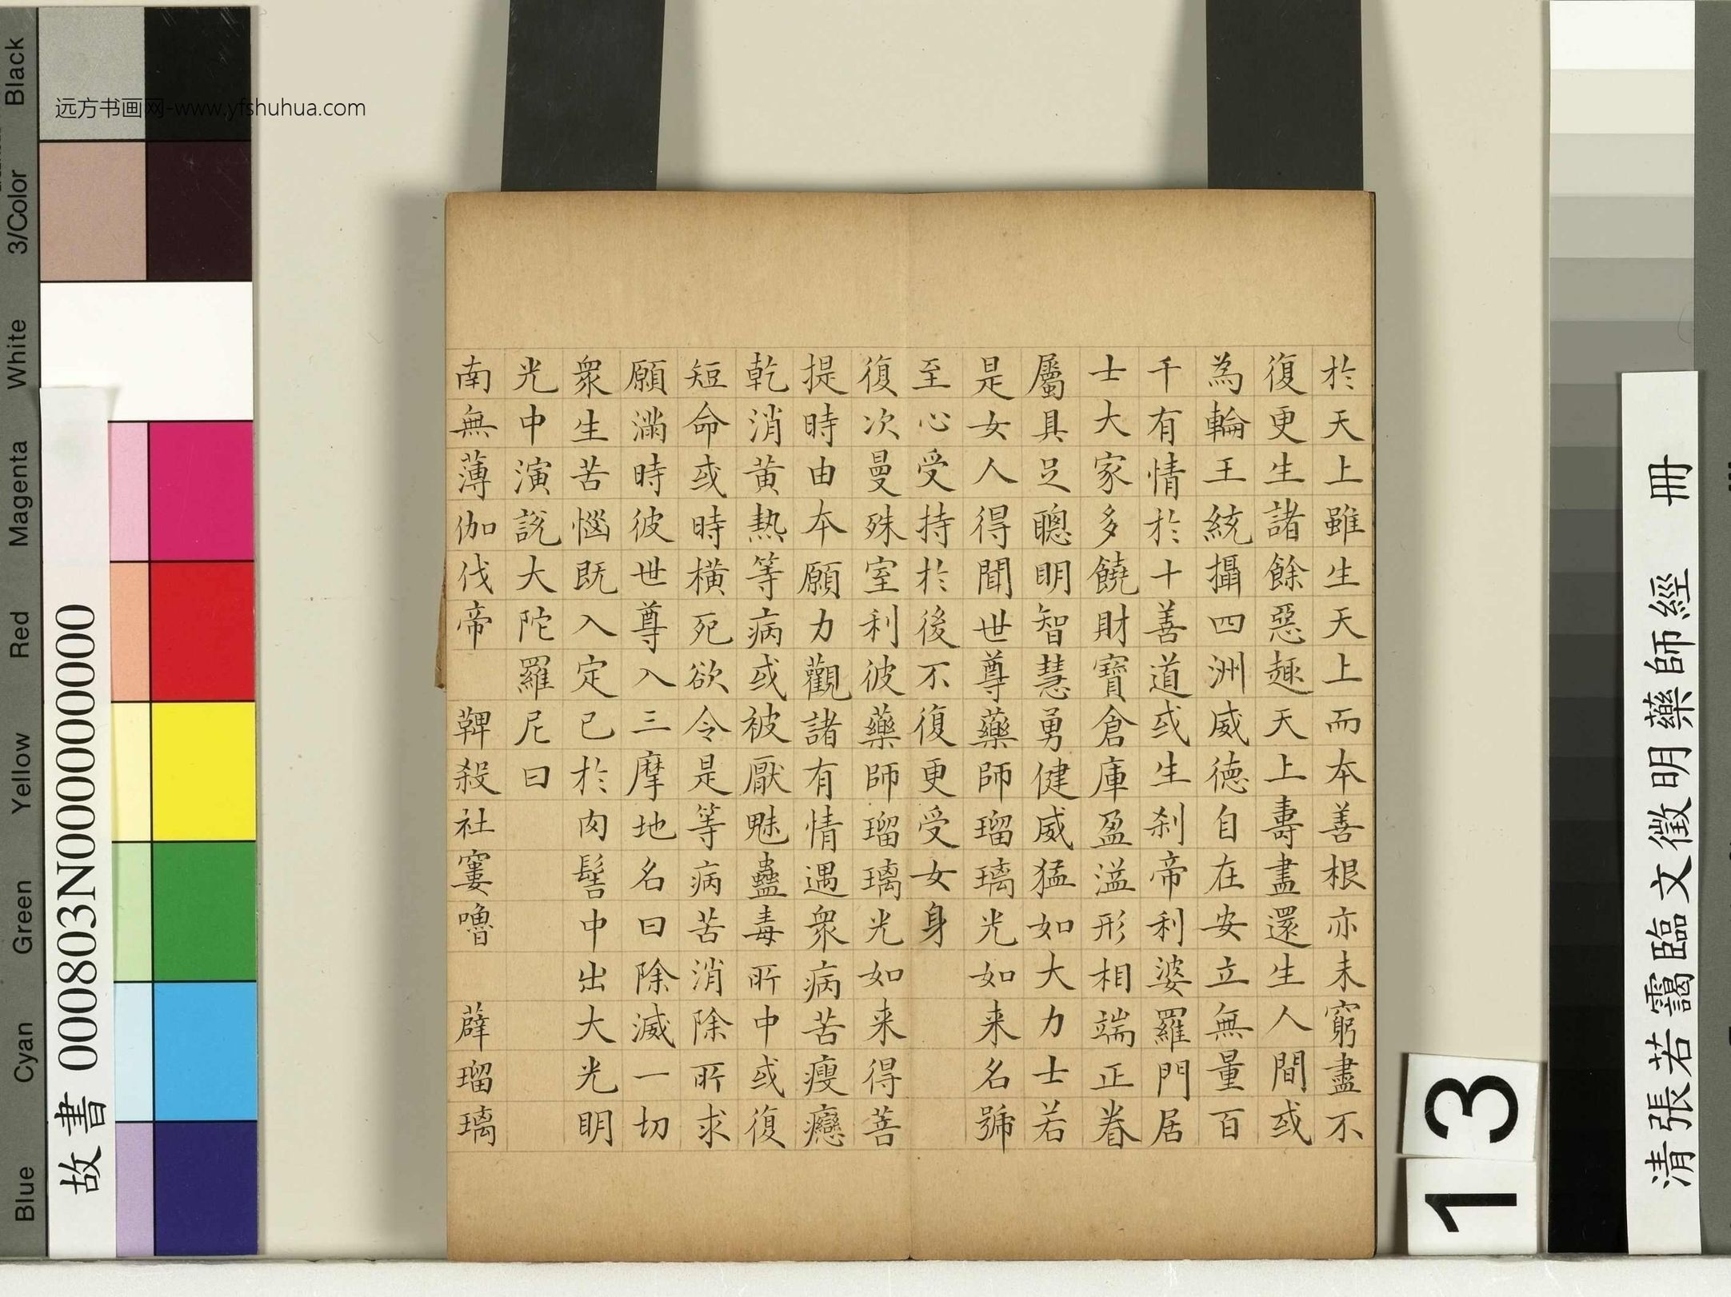 於天上雖生天上而本善根亦未窮盡不
復更生諸餘惡趣天上壽盡還生人間或
為輪王統攝四洲威德自在安立無量百
千有情於十善道或生剎帝利婆羅門居
士大家多饒財寶倉庫盈溢形相端正眷
屬具足聰明智慧勇健威猛如大力士若
是女人得聞世尊藥師瑠璃光如来名號
至心受持於後不復更受女身
復次曼殊室利彼藥師瑠璃光如来得菩
提時由本願力觀諸有情遇衆病苦瘦癮
乾消黄熱等病或被厭魅蠱毒所中或復
短命或時橫死欲令是等病苦消除所求
願滿時彼世尊入三摩地名曰除滅一切
衆生苦惱既入定已於肉髻中出大光明
光中演說大陀羅尼曰
南無薄伽伐帝 鞞殺社窶嚕 薜瑠璃
远方书画网-www.yfshuhua.com
Black
3/Color
White
Magenta
Red
Yellow
Green
Cyan
Blue
故書 000803N000000000
清張若靄臨文徵明藥師經 冊
13